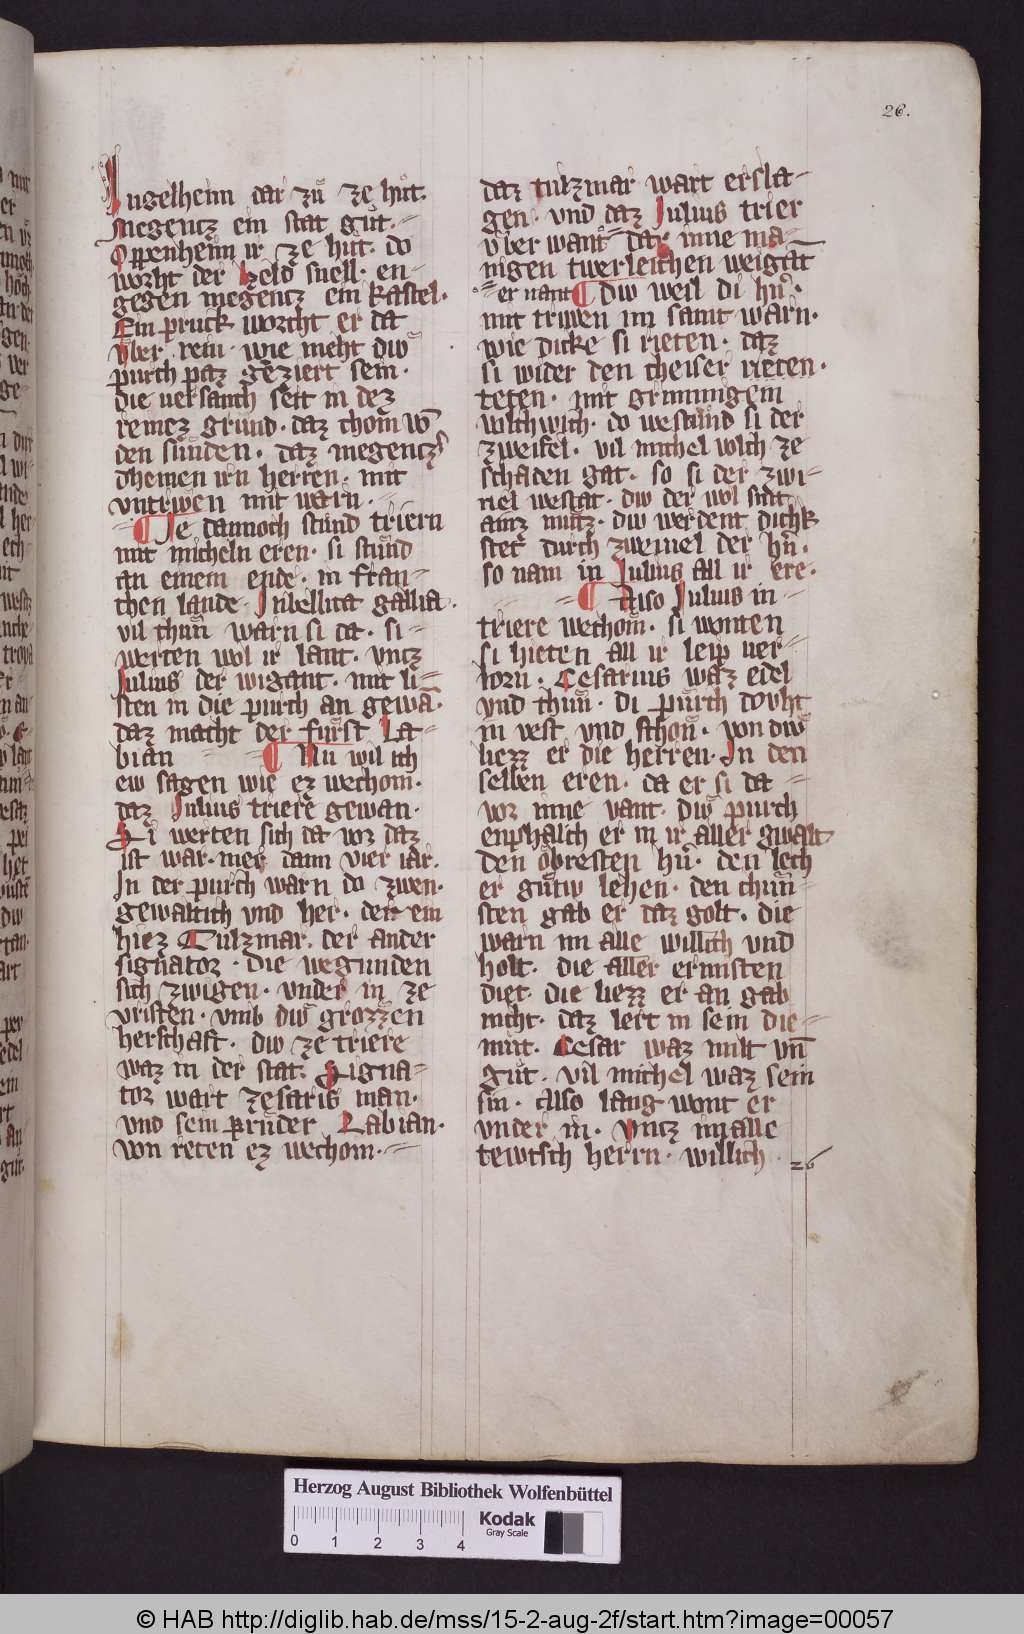 26.
Ingelheim dar zuͦ ze huͦt.
Megentz ein stat guͦt.
Oppenheim ir ze hut. do
worht der Held snell. en-
gegen megentz ein kastel.
Ein pruck worcht er da
vͤber rein. wie meht diw
purch paz geziert sein.
die versanch seit in dez
reinez grund. daz chom vō
den sunden. daz megentzͤ
dheinen irn herren. mit
vntrwen mit warn.
Ie dannoch stund triern
mit micheln eren. si stund
an einem ende. in fran-
chen lande. Inbellica gallia.
vil chun̄ warn si da. si
werten wol ir lant. vntz
Julius der wigant. mit li-
sten in die purch an gewā.
daz macht der furst La-
bian Nu wil ich
ew sagen wie ez wechom.
daz Julius triere gewan.
Si werten sich da vor daz
ist war. mer dann vier iar.
In der purch warn do zwen.
gewaltich vnd her. der ein
hiez Tulzmar. der ander
signator. Die wegunden
sich zwigen. vnder in ze
vristen. vmb diw grozzen
herschaft. diw ze triere
waz in der stat. Signa-
tor wart Zesaris man.
vnd sein pruder Labian.
von reten ez wechom.
daz tulzmar wart ersla-
gen. vnd daz Julius trier
vͤber want daz inne ma-
nigen twerleichen weigāt
er nant Diw weil di hn̄.
mit triwen im samt warn.
wie dicke si rieten. daz
si wider den cheiser rieten.
teten. mit grimmigem
wichwich. do westund si der
zweifel. vil michel wich ze
schaden gat. so si der zwi-
uel westat. diw der wol stat
aintz mutz. diw werdent dichk
stet durch zweiuel der hn̄.
so nam in Julius all ir ere.
Also Julius in
triere wechom. si wonten
si hieten all ir leip ver-
lorn. Cesarius waz edel
vnd chun̄. Di purch dovht
in vest vnd schon̄. von diw
liezz er die herren. In den
selben eren. da er si da
vor inne vant. Diw purch
enphalch er in ir aller gwalt
den obresten hn̄. den lech
er gutiw lehen. den chun̄-
sten gab er daz golt. die
warn im alle willich vnd
holt. die aller ermisten
diet. die liezz er an gab
nicht. daz lert in sein die-
mut. Cesar waz milt vn̄
guͦt. vil michel waz sein
sin. Also lang wont er
vnder in. Vntz im alle
tewtsch herrn. willich
26
Herzog August Bibliothek Wolfenbüttel
0 1 2 3 4
Kodak
Gray Scale
© HAB http://diglib.hab.de/mss/15-2-aug-2f/start.htm?image=00057